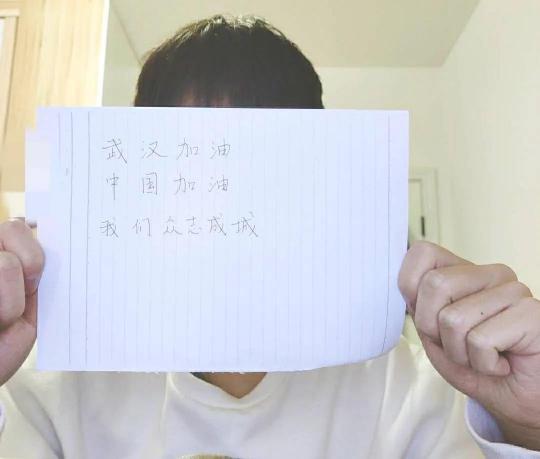 武汉加油
中国加油
我们众志成城